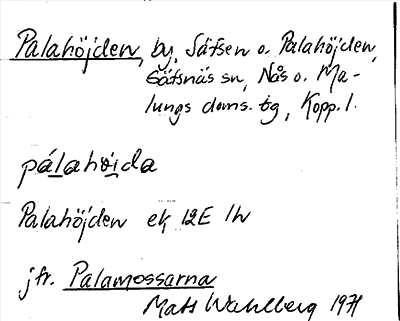 Palahöjden, by, Säfsen o. Palahöjden,
Säfsnäs sn, Nås o. Ma-
lungs doms. tg, Kopp. l.
pálahöida
Palahöjden ek 12E 1h
jfr. Palamossarna
Mats Wahlberg 1971